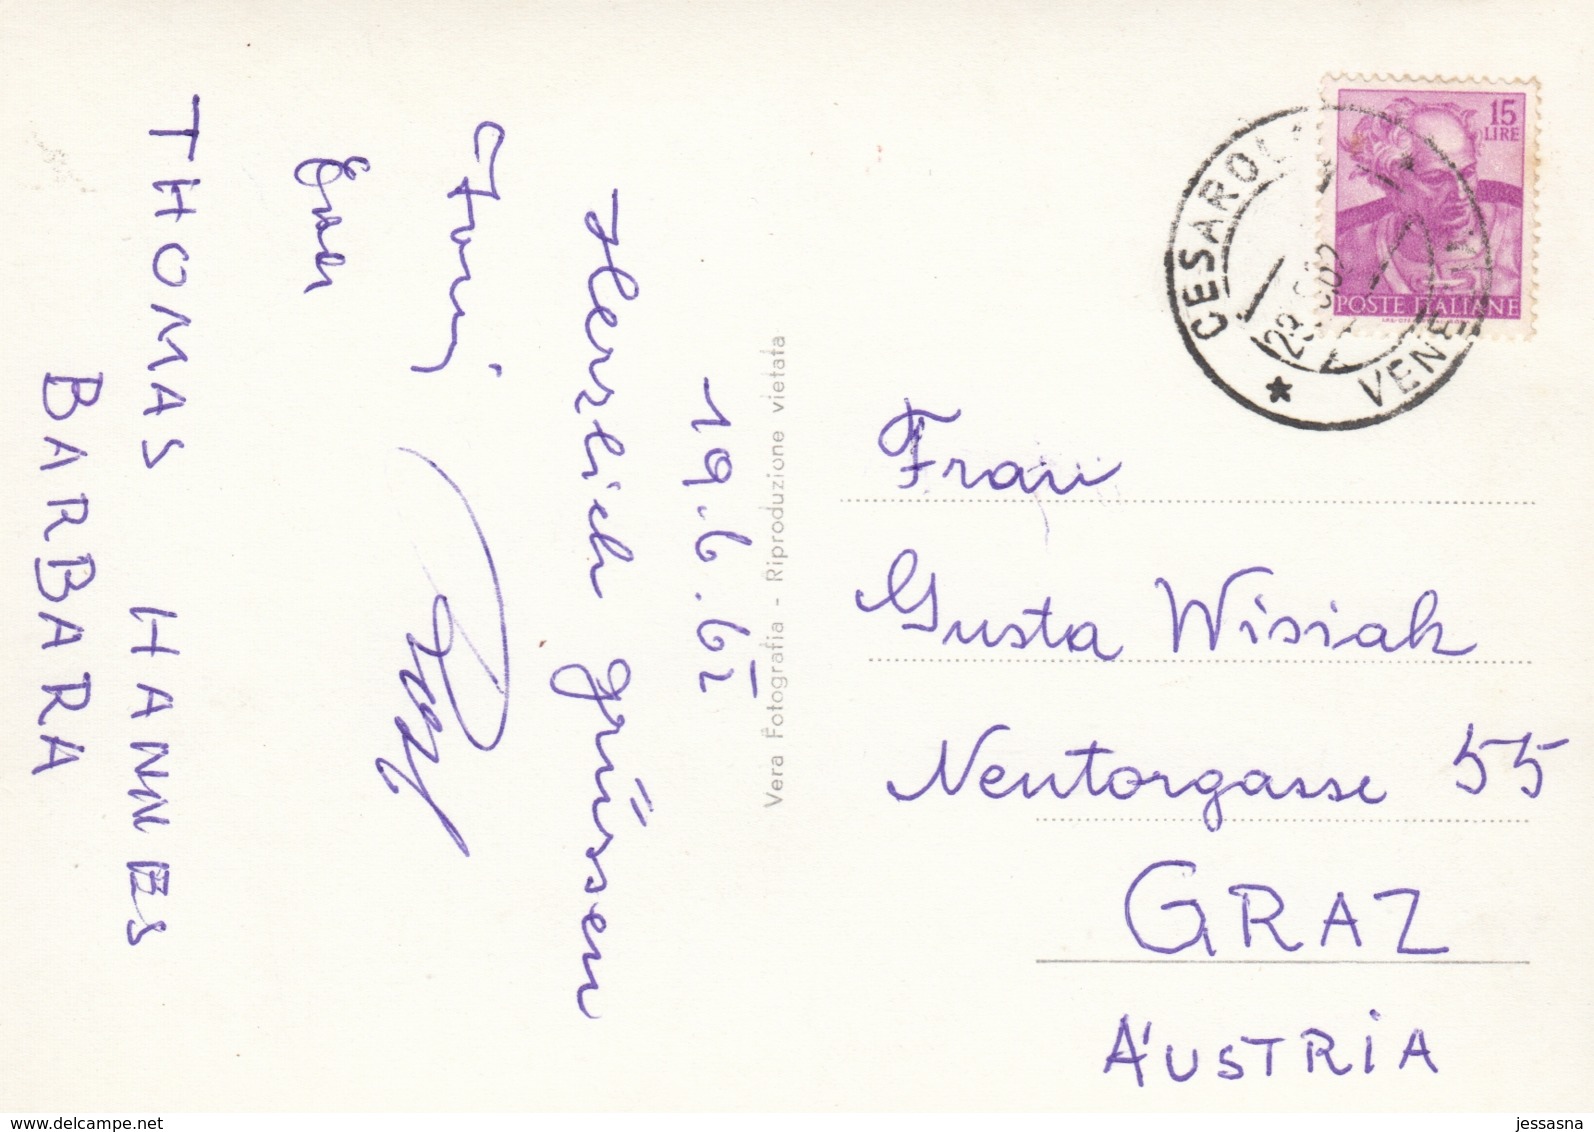 19.6.62
Herzlich grüssen
THOMAS HANNES
BARBARA
Vera Fotografia - Riproduzione vietata
15
LIRE
POSTE ITALIANE
CESAROL
VENE
Frau
Gusta Wisiak
Neutorgasse 55
GRAZ
AUSTRIA
delcampe.net
jessasna